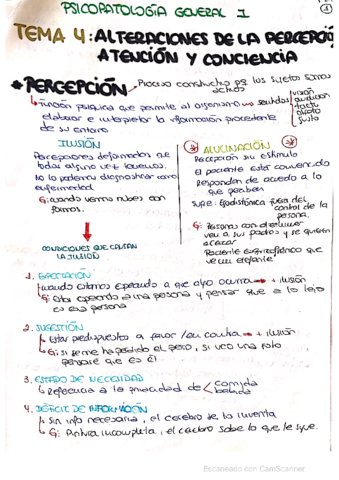 PSICOPATOLOGÍA GENERAL 1
1
TEMA 4: ALTERACIONES DE LA PERCEPCIÓ
ATENCIÓN Y CONCIENCIA
* PERCEPCIÓN → Proceso constructivo pq los sujetos somos
activos
↳ Función psíquica que permite al organismo → sentidos
visión
audición
tacto
olfato
gusto
elaborar e interpretar la información procedente
de su entorno
ILUSIÓN
Percepciones deformadas que
todos alguna vez tenemos.
No lo podemos diagnosticar como
enfermedad
Ej: cuando vemos nubes con
formas.
ALUCINACIÓN
Percepción sin estímulo
El paciente está convencido
Responden de acuerdo a lo
que perciben
fuera del
control de la
persona.
Ej: Persona con
ve a su y se quieren
acercar
Paciente esquizofrénico que
ve un elefante
CONDICIONES QUE CAUSAN
LA ILUSIÓN
1. EXPECTACIÓN
↳ cuando estamos esperando a que algo ocurra → + ilusión
Ej: Esta esperando a una persona y pensar que a lo lejos
es ella
2. SUGESTIÓN
↳ Estar predispuestos a favor / en contra → + ilusión
Ej: si se me ha perdido el perro, si veo una foto
pensaré que es él
3. ESTADO DE NECESIDAD
↳ Referencia a la privacidad de
comida
bebida
4. DÉFICIT DE INFORMACIÓN
↳ Sin info necesaria, el cerebro se lo inventa
Ej: Pintura incompleta, el cerebro sabe lo que le sigue.
Escaneado con CamScanner